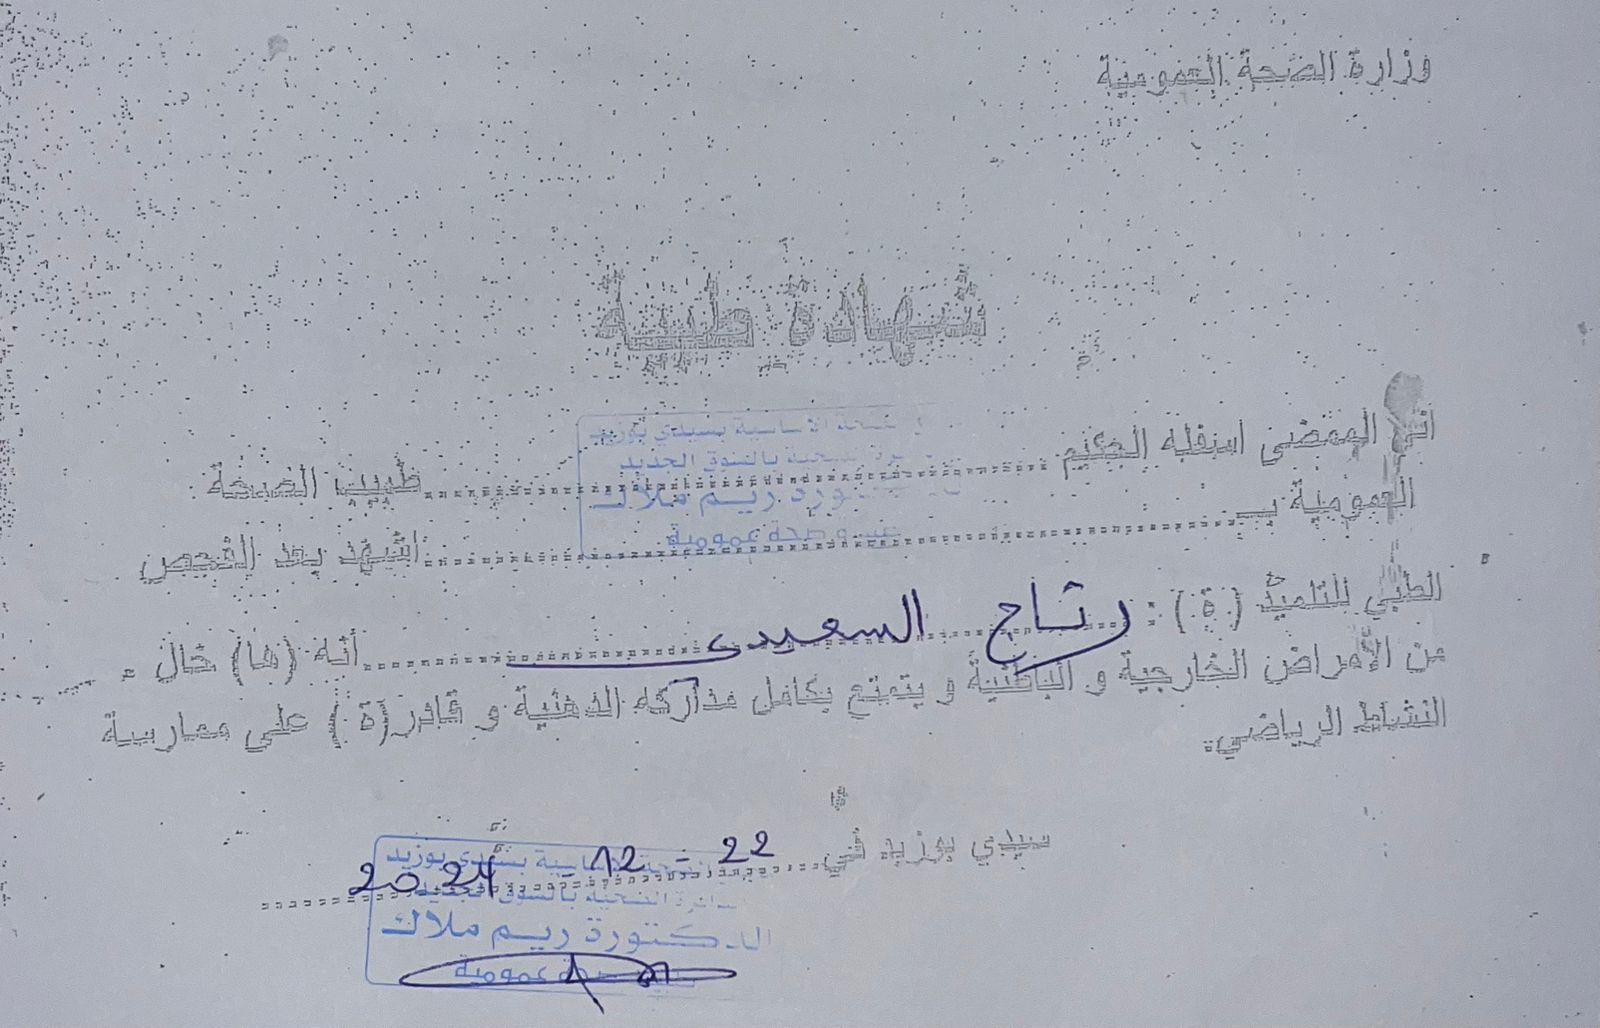 وزارة الصحة العمومية
شهادة طبية
اني الممضي اسفله الحكيم طبيب الصحة
الصحة الأساسية بسيدي بوزيد
الصحية بالسوق الجديد
ريم ملاك
صحة عمومية
العمومية بـ اشهد بعد الفحص
الطبي للتلميذ (ة) : رتاج السعيدي أنه (ها) خال
من الأمراض الخارجية و الباطنية و يتمتع بكامل مداركه الذهنية و قادر(ة) على ممارسة
النشاط الرياضي.
سيدي بوزيد في 22 - 12 - 2024
الأساسية بسيدي بوزيد
الدائرة الصحية بالسوق الجديد
الدكتورة ريم ملاك
صحة عمومية